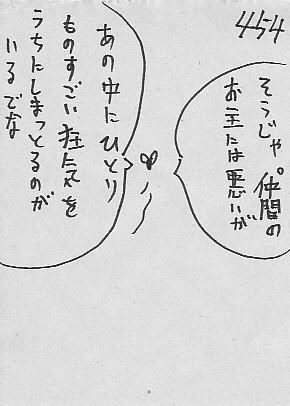 454
そうじゃ。仲間の
お主には悪いが
あの中にひとり
ものすごい狂気を
うちにしまっとるのが
いるでな